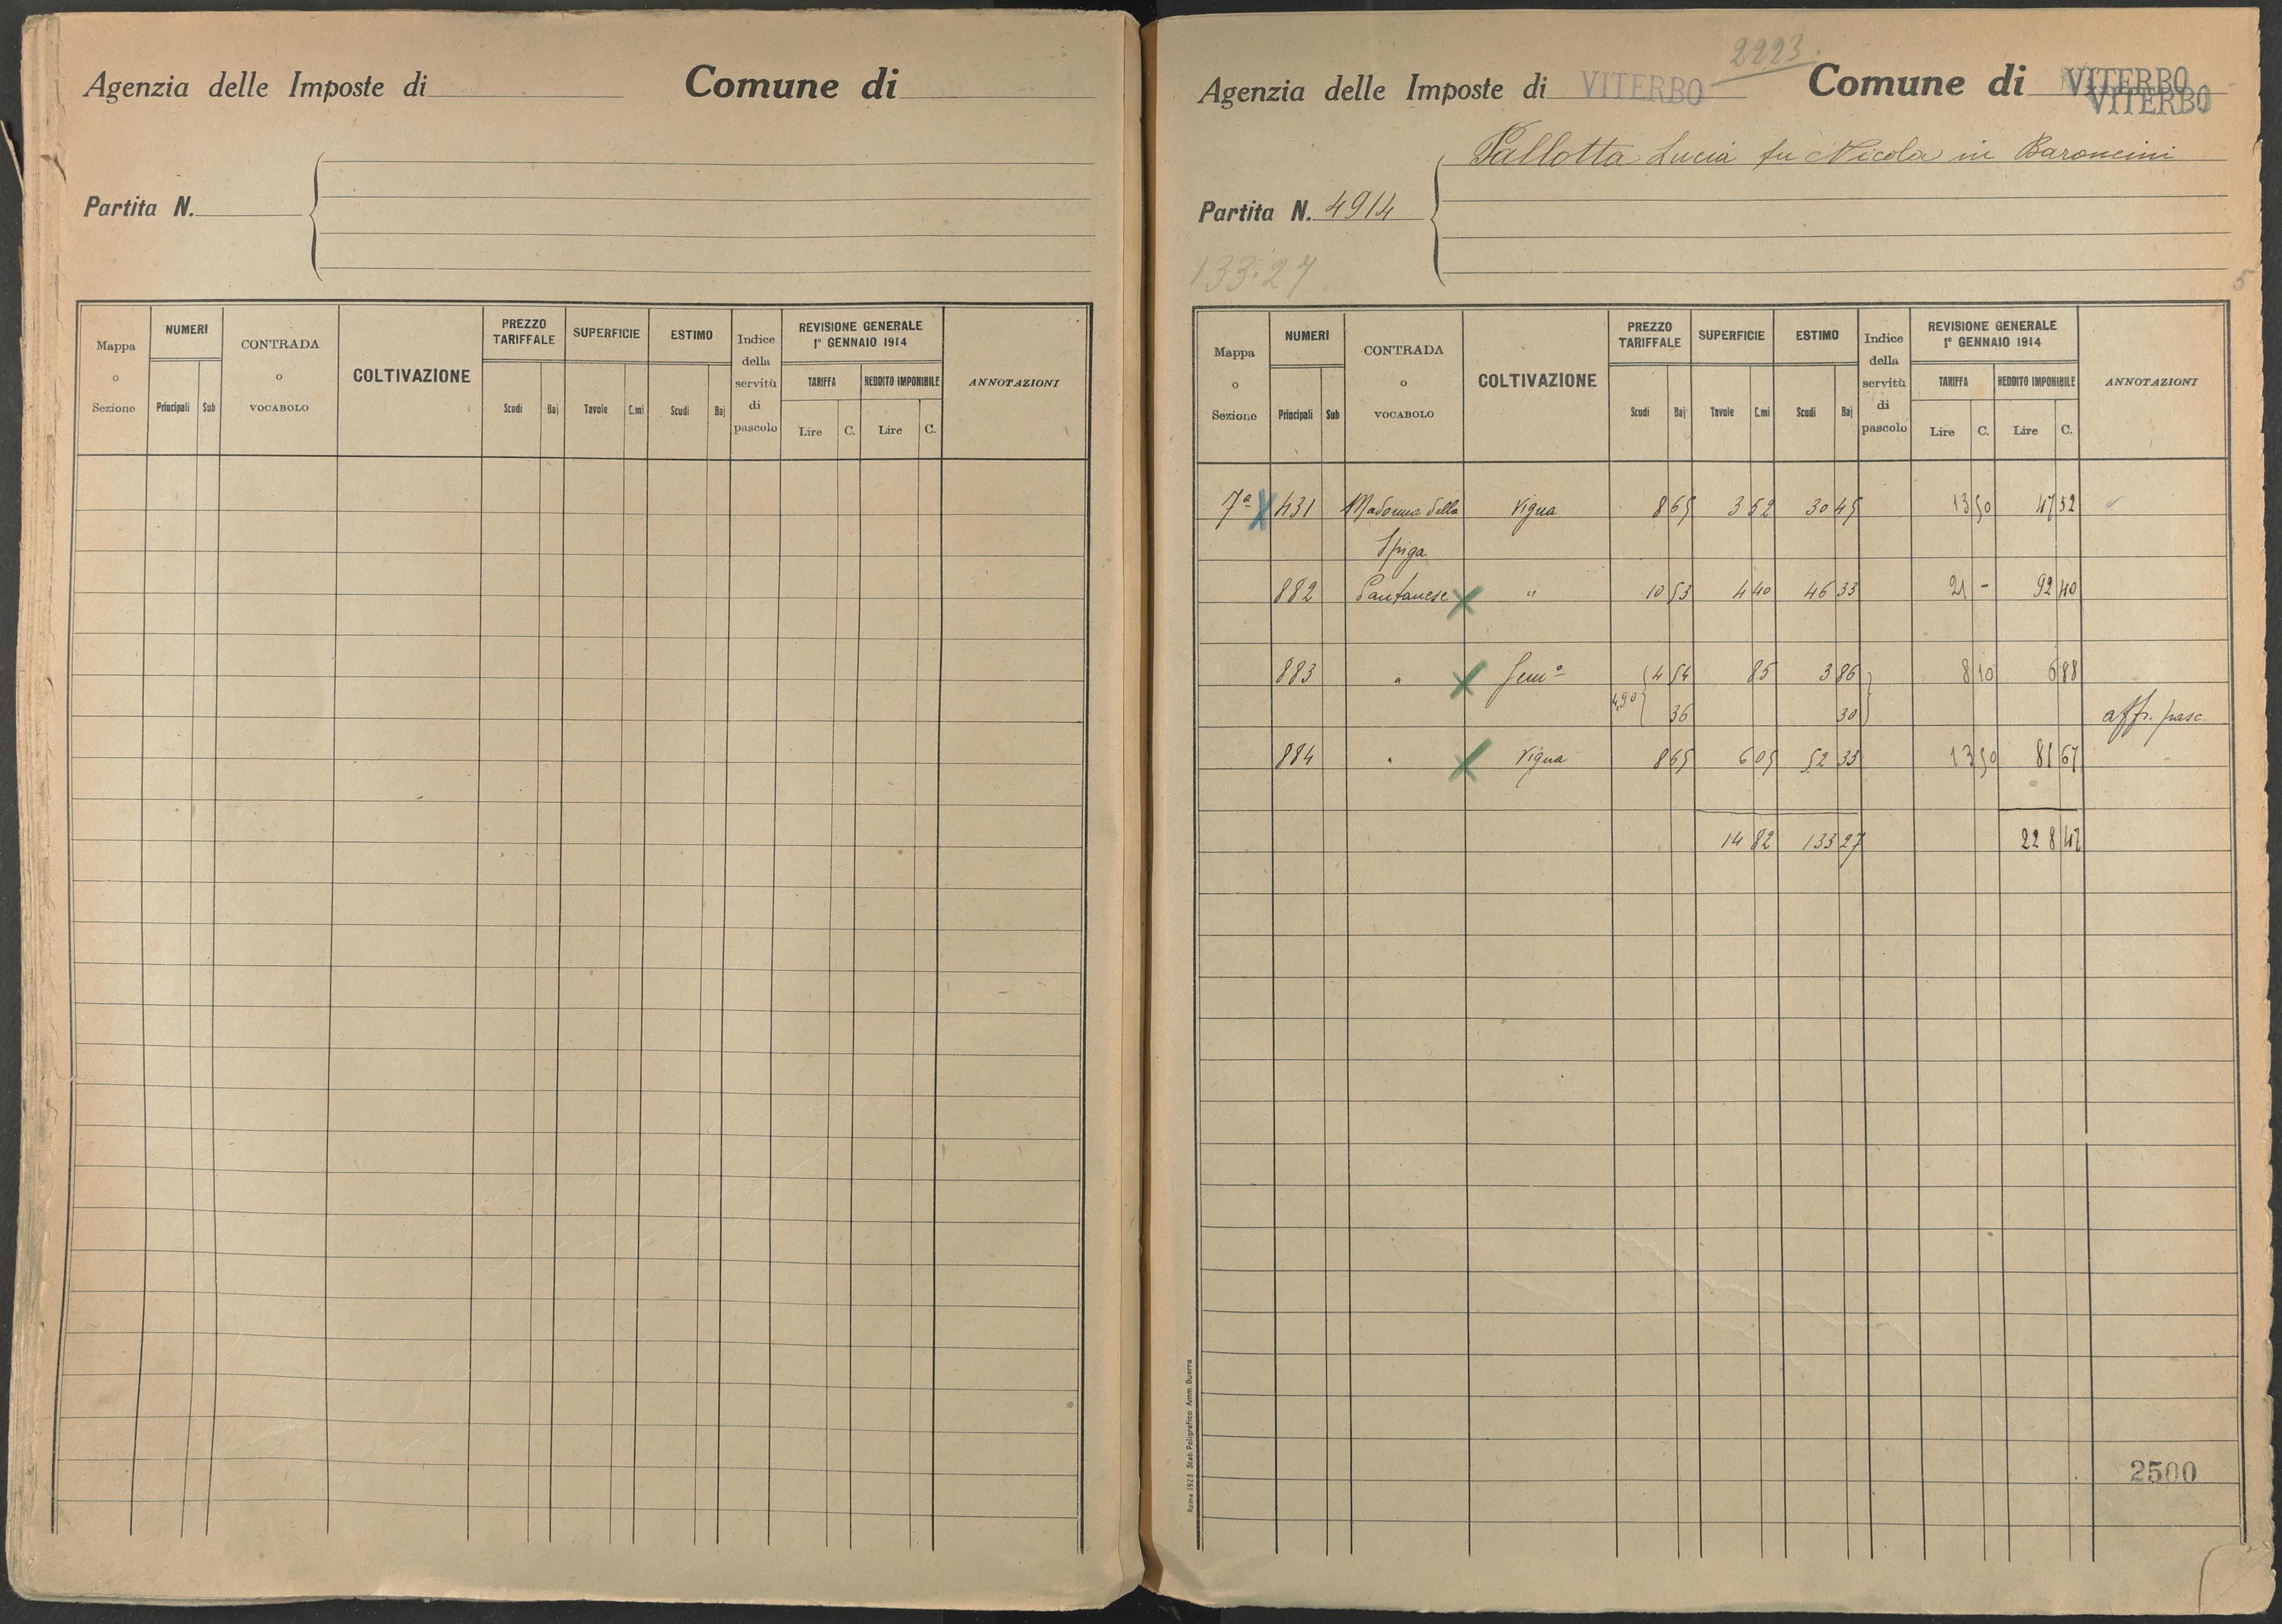 Agenzia delle Imposte di Comune di
Partita N.
Mappa o Sezione NUMERI Principali Sub CONTRADA o VOCABOLO COLTIVAZIONE PREZZO TARIFFALE Scudi Baj SUPERFICIE Tavole C.mi ESTIMO Scudi Baj Indice della servitù di pascolo REVISIONE GENERALE 1° GENNAIO 1914 TARIFFA Lire C. REDDITO IMPONIBILE Lire C. ANNOTAZIONI
2223.
Agenzia delle Imposte di VITERBO Comune di VITERBO
VITERBO
Pallotta Lucia fu Nicola in Baroncini
Partita N. 4914
133.27
5
Mappa o Sezione NUMERI Principali Sub CONTRADA o VOCABOLO COLTIVAZIONE PREZZO TARIFFALE Scudi Baj SUPERFICIE Tavole C.mi ESTIMO Scudi Baj Indice della servitù di pascolo REVISIONE GENERALE 1° GENNAIO 1914 TARIFFA Lire C. REDDITO IMPONIBILE Lire C. ANNOTAZIONI
7ª 431 Madonna della Vigna 8 65 3 52 30 45 13 50 47 52
Spiga
882 Pantanese " 10 53 4 40 46 33 21 - 92 40
883 " Sem° 4 54 85 3 86 8 10 6 88
4,90 36 30 aff. pasc.
884 " Vigna 8 65 6 05 52 33 13 50 81 67
14 82 133 27 228 47
2500
Roma 1925 Stab. Poligrafico Amm. Guerra